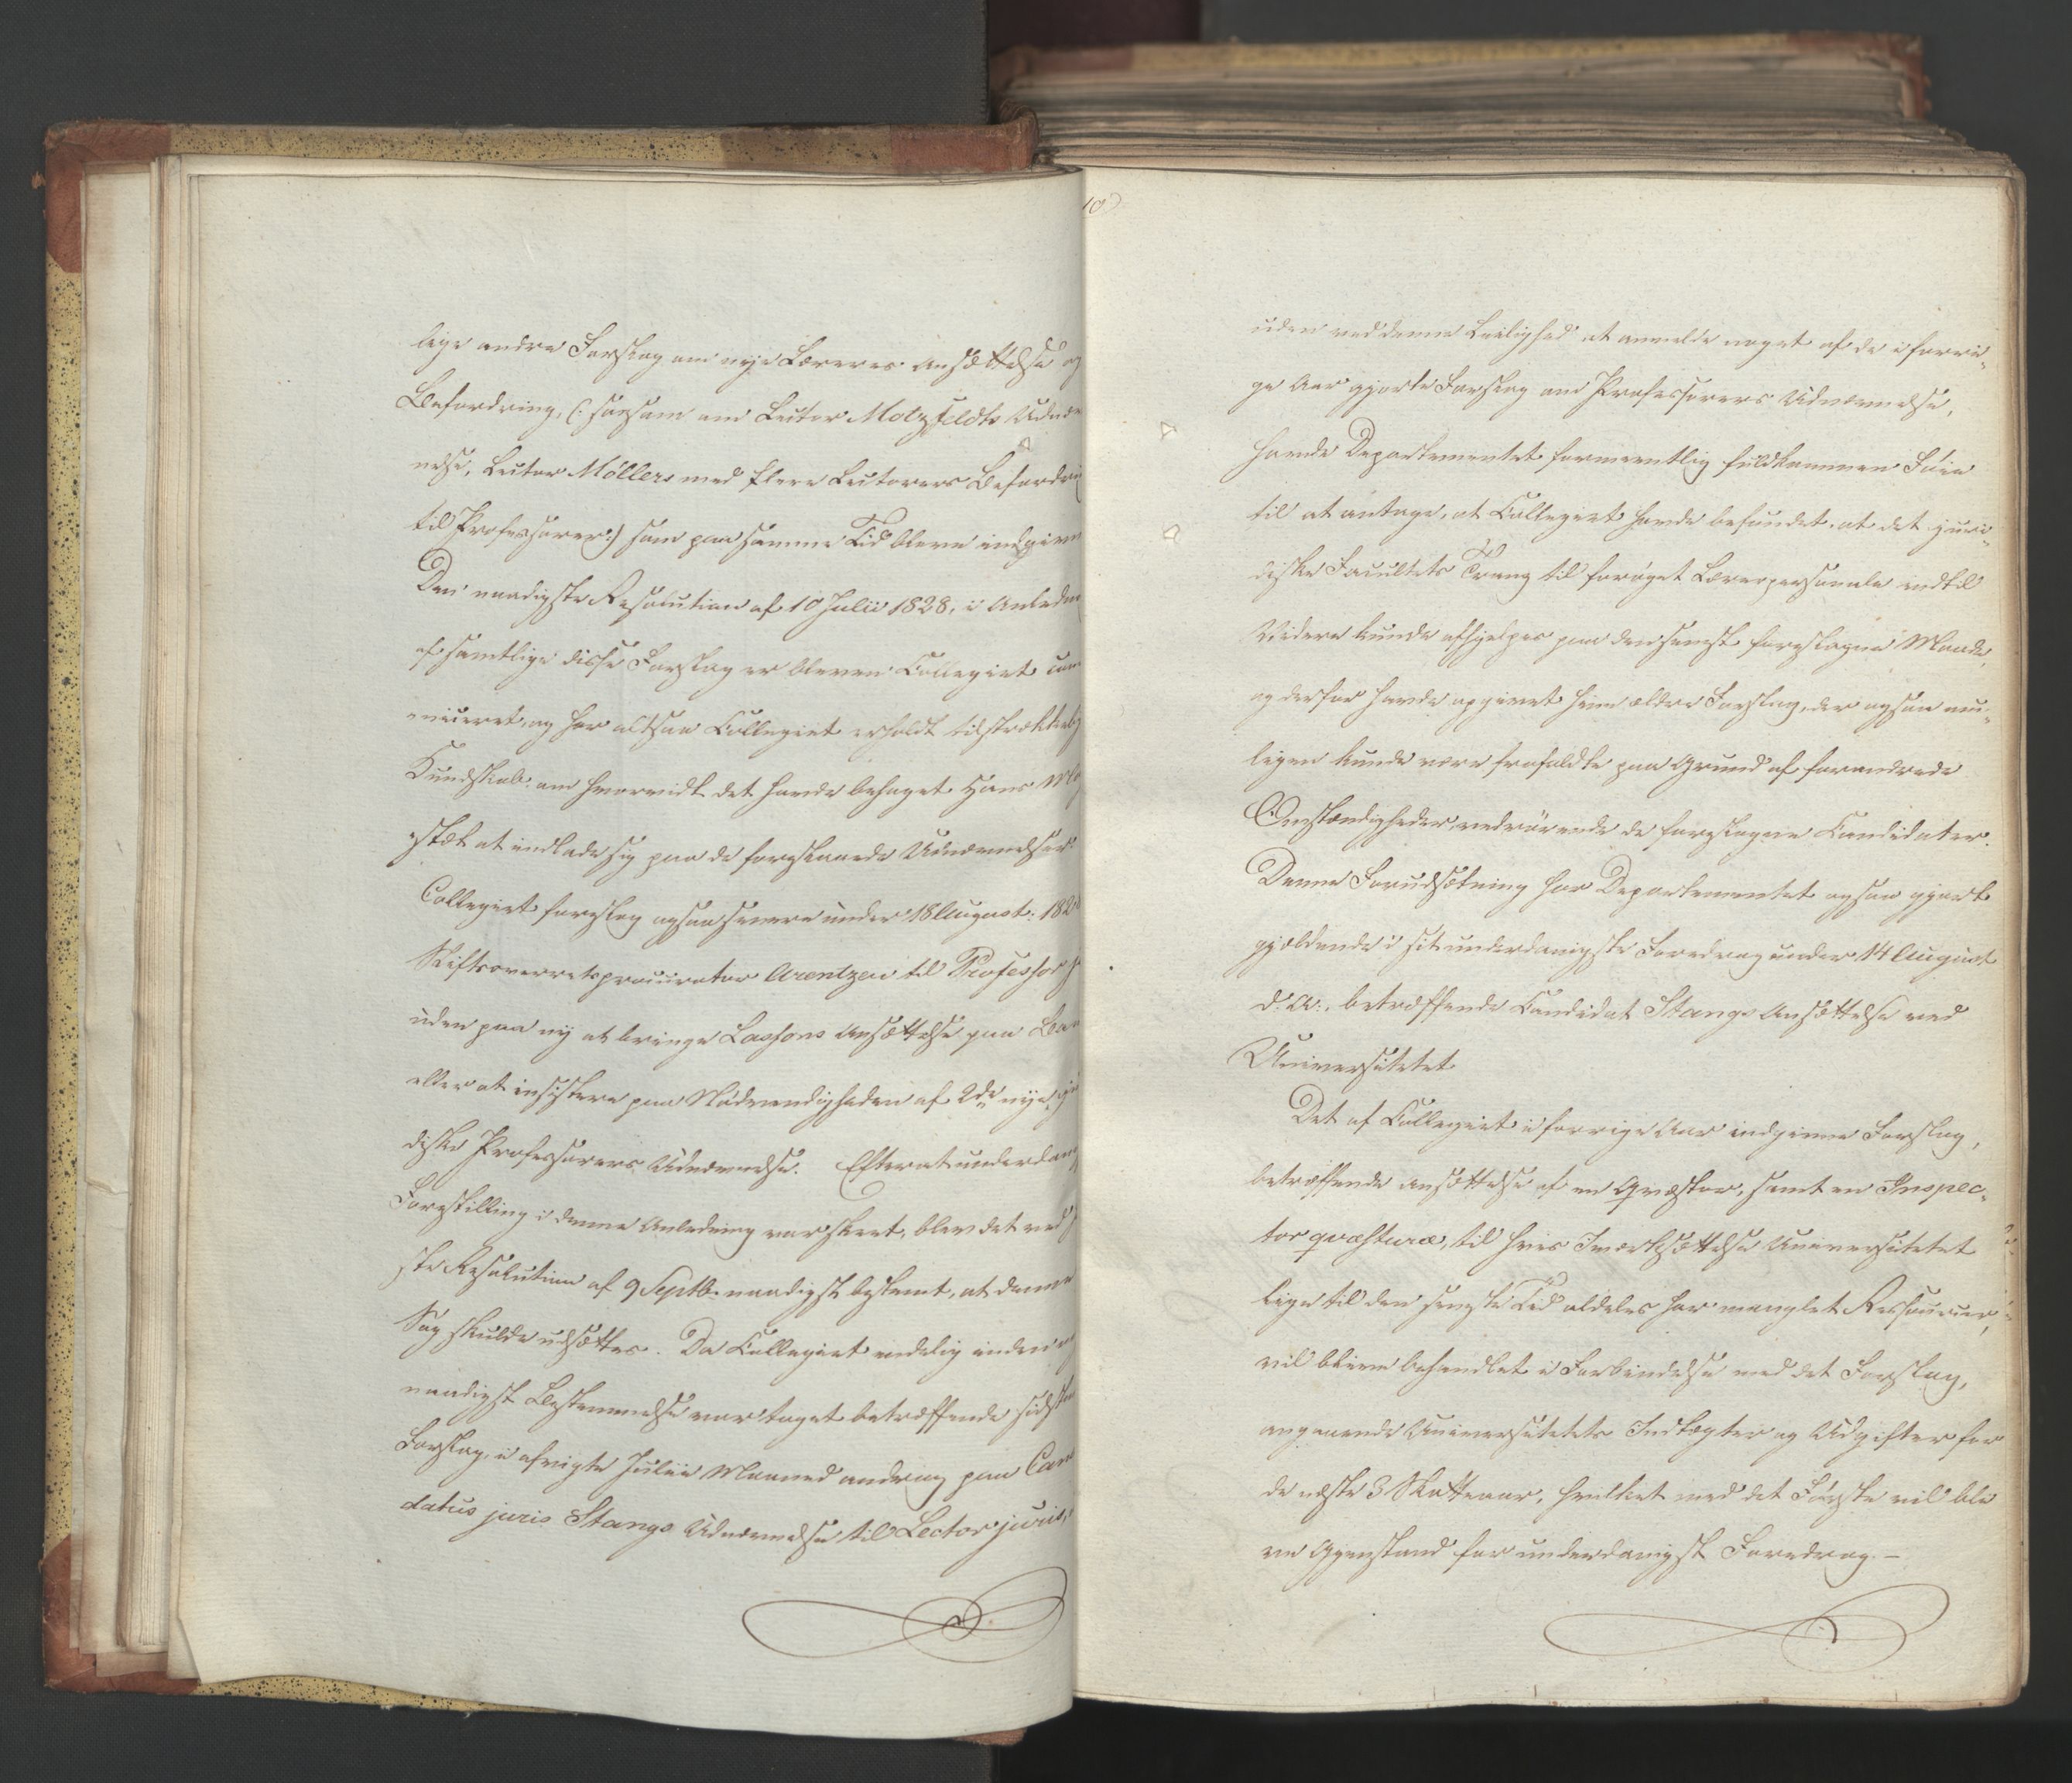 lige andre Forslag om nye Læreres Ansættelse og
Befordring, (: saasom om Lector Motzfeldts Udnæv
nelse, Lector Möllers med flere Lectorers Befordrin
til Professorer:) som paa samme Tid bleve indgivn
Den naadigste Resolution af 10 Julii 1828, i Anledn
af samtlige disse Forslag er bleven Collegiet com
municeret, og har altsaa Collegiet erholdt tilstrækkelig
Kundskab om hvorvidt det havde behaget Hans Ma
jestæt at indlade sig paa de foreslaaede Udnævnelser.
Collegiet foreslog ogsaa senere under 18 August 182
Stiftsoverretsprocurator Arentzen til Professor j
uden paa ny at bringe Lassons Ansættelse paa Ban
eller at insistere paa Nødvendigheden af 2de nye ju
diske Professorers Udnævnelse. Efterat underdan
Forestilling i denne Anledning var skeet, blev det ved
ste Resolution af 9 Septb. naadigst bestemt, at denne
Sag skulde udsættes. Da Collegiet endelig inden
naadigst Bestemmelse var taget betræffende sidste
Forslag, i afvigte Julii Maaned androg paa Can
datus juris Stangs Udnævnelse til Lector juris,
10
uden ved denne Leilighed at anmelde noget af de i forri-
ge Aar gjorte Forslag om Professorers Udnævnelse,
havde Departementet formeentlig fuldkommen Föie
til at antage, at Collegiet havde befundet, at det juri-
diske Facultets Trang til foröget Lærerpersonale indtil
Videre kunde afhjelpes paa den senest foreslagne Maade,
og derfor havde opgivet hine ældre Forslag, der ogsaa mu-
ligen kunde være frafaldte paa Grund af forandrede
Omstændigheder vedrörende de foreslagne Candidater.
Denne Forudsætning har Departementet ogsaa gjort
gjældende i sit underdanigste Foredrag under 14 August
d. A., betræffende Candidat Stangs Ansættelse ved
Universitetet
Det af Collegiet i forrige Aar indgivne Forslag,
betræffende Ansættelse af en Qvæstor, samt en Inspec-
tor qvæsturæ, til hvis Iværksættelse Universitetet
lige til den seneste Tid aldeles har manglet Ressourcer,
vil blive behandlet i Forbindelse med det Forslag,
angaaende Universitetets Indtægter og Udgifter for
de næste 3 Skatteaar, hvilket med det Förste vil bli
ve Gjenstand for underdanigst Foredrag. –